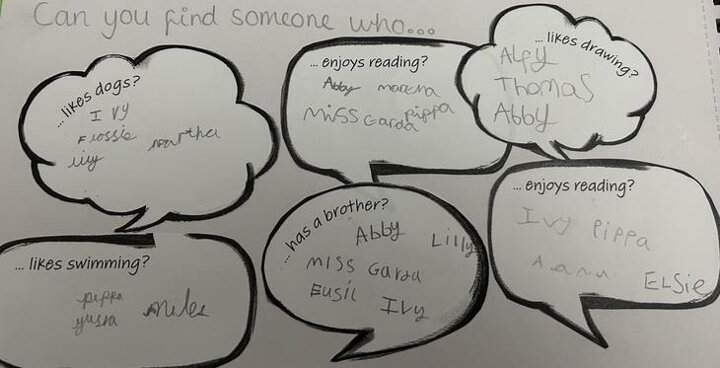 Can you find someone who...
... likes dogs?
Ivy
Flossie
martha
... enjoys reading?
Abby
MISS Garda pippa
... likes drawing?
Alfy
Thomas
Abby
... likes swimming?
pippa
yusra
miles
... has a brother?
Abby
Lilly
MISS Garda
Ivy
... enjoys reading?
Ivy pippa
ELSie